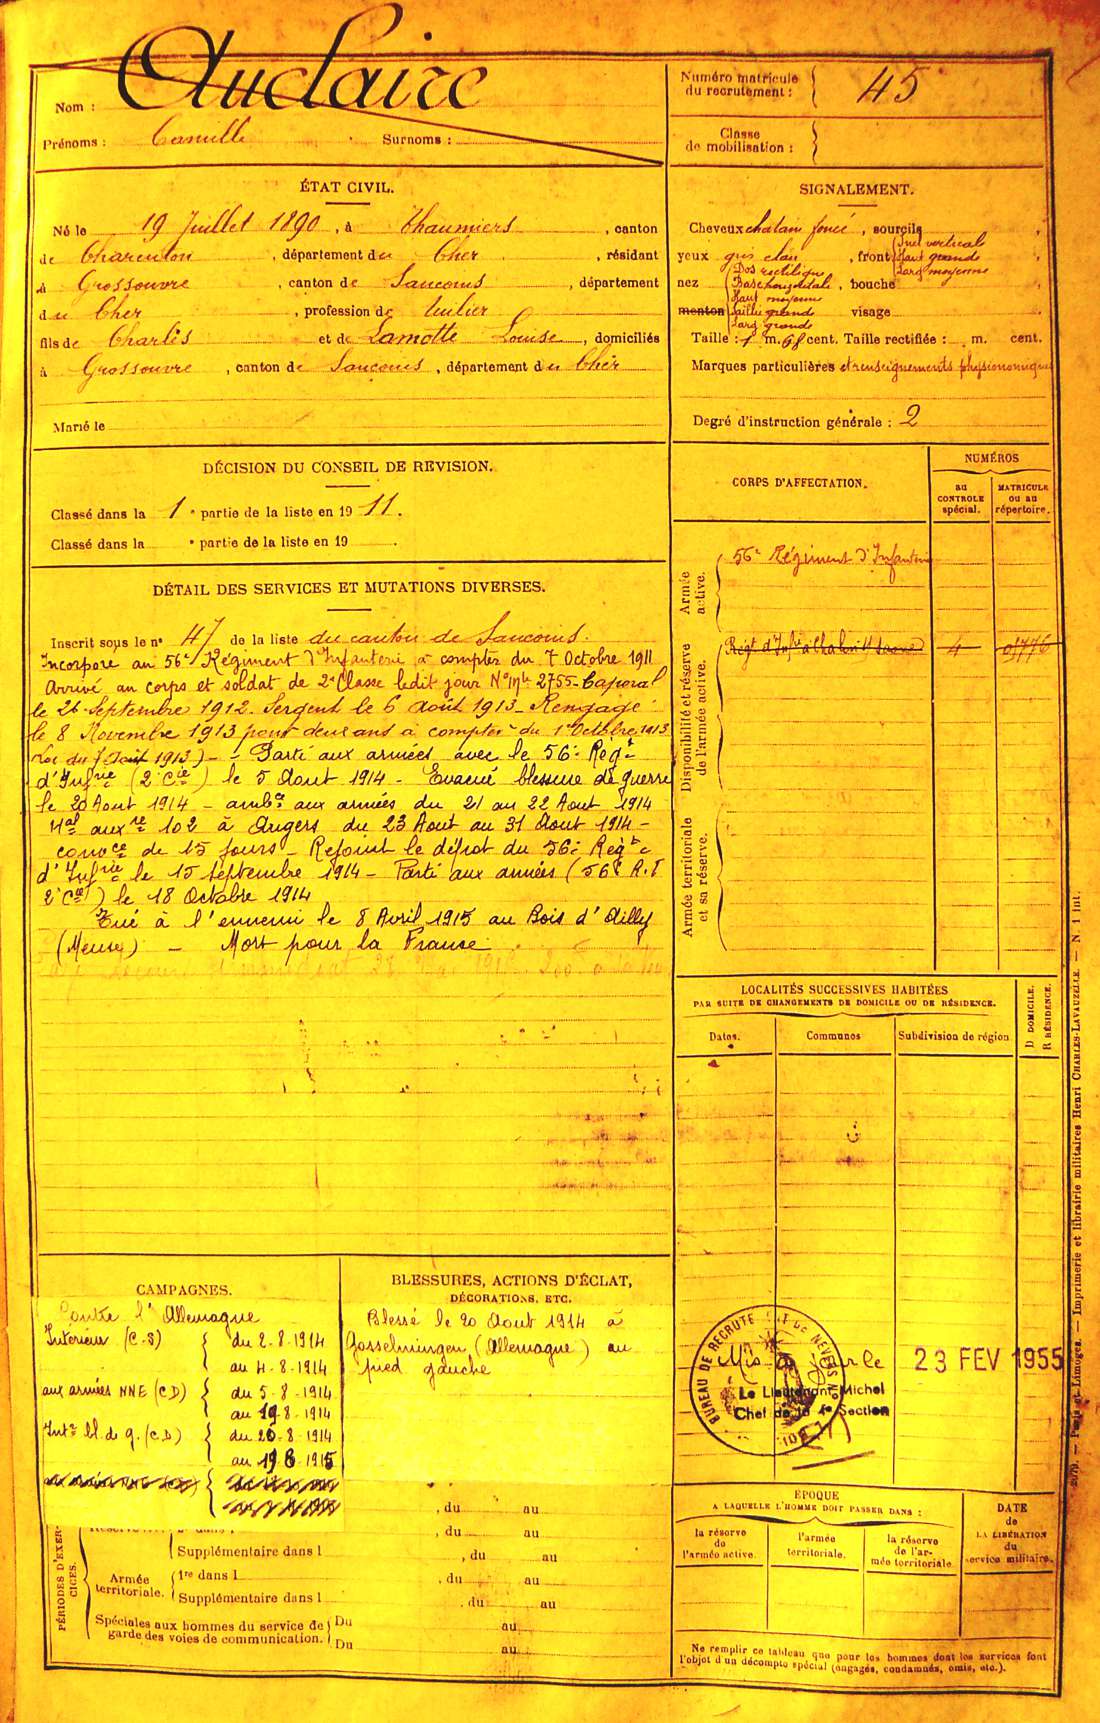 Nom : Auclaire
Prénoms : Camille Surnoms :
Numéro matricule du recrutement : 45
Classe de mobilisation :
ÉTAT CIVIL.
Né le 19 Juillet 1890, à Chaumiers, canton
de Charenton, département du Cher, résidant
à Grossouvre, canton de Sancoins, département
du Cher, profession de tuilier
fils de Charles et de Lamotte Louise, domiciliés
à Grossouvre, canton de Sancoins, département du Cher
Marié le
SIGNALEMENT.
Cheveux chatain foncé, sourcils
yeux gris clair, front Incl vertical
Haut grande
Larg moyenne
nez Dos rectiligne
Base horizontale, bouche
Haut moyenne
menton Saillie grande visage
Larg grande
Taille : 1 m. 68 cent. Taille rectifiée : m. cent.
Marques particulières et renseignements physionomiques
Degré d'instruction générale : 2
DÉCISION DU CONSEIL DE REVISION.
Classé dans la 1e partie de la liste en 1911.
Classé dans la e partie de la liste en 19 .
CORPS D'AFFECTATION.
NUMÉROS
au CONTROLE spécial.
MATRICULE ou au répertoire.
Armée active.
56e Régiment d'Infanterie
Disponibilité et réserve de l'armée active.
Régt d'Infie à Chalon s/ Saone 4
Armée territoriale et sa réserve.
DÉTAIL DES SERVICES ET MUTATIONS DIVERSES.
Inscrit sous le no 47 de la liste du canton de Sancoins.
Incorporé au 56e Régiment d'Infanterie à compter du 7 Octobre 1911
Arrivé au corps et soldat de 2e Classe ledit jour No Mle 2755 - Caporal
le 26 Septembre 1912. Sergent le 6 Août 1913 - Rengagé
le 8 Novembre 1913 pour deux ans à compter du 1er Octobre 1913
Loi du 7 Août 1913) - Parti aux armées avec le 56e Régt
d'Infrie (2e Cie) le 5 Aout 1914 - Evacué blessure de guerre
le 20 Aout 1914 - ambce aux armées du 21 au 22 Aout 1914
Hal auxre 102 à Angers du 23 Aout au 31 Aout 1914 -
convce de 15 jours - Rejoint le dépot du 56e Régt
d'Infrie le 15 septembre 1914 - Parti aux armées (56e R.I
2e Cie) le 18 Octobre 1914
Tué à l'ennemi le 8 Avril 1915 au Bois d'Ailly
(Meuse) - Mort pour la France
LOCALITÉS SUCCESSIVES HABITÉES
PAR SUITE DE CHANGEMENTS DE DOMICILE OU DE RÉSIDENCE.
Dates. Communes Subdivision de région
D DOMICILE. R RÉSIDENCE.
CAMPAGNES.
Contre l'Allemagne
Interieur (C-S) du 2-8-1914
au 4-8-1914
aux armées NNE (CD) du 5-8-1914
au 19-8-1914
Intr bl. de g. (CD) du 20-8-1914
au 19 8 1915
BLESSURES, ACTIONS D'ÉCLAT, DÉCORATIONS, ETC.
Blessé le 20 Aout 1914 à
Gosselmingen (Allemagne) au
pied gauche
BUREAU DE RECRUTEMENT DE NEVERS
Mis à jour le 23 FEV 1955
Le Lieutenant Michel
Chef de la 4e Section
PÉRIODES D'EXERCICES.
, du au
, du au
Supplémentaire dans l , du au
Armée territoriale.
1re dans l , du au
Supplémentaire dans l , du au
Spéciales aux hommes du service de garde des voies de communication.
Du au
Du au
ÉPOQUE
A LAQUELLE L'HOMME DOIT PASSER DANS :
la réserve de l'armée active.
l'armée territoriale.
la réserve de l'armée territoriale
DATE de LA LIBÉRATION du service militaire.
Ne remplir ce tableau que pour les hommes dont les services font
l'objet d'un décompte spécial (engagés, condamnés, omis, etc.).
Paris et Limoges. — Imprimerie et librairie militaires Henri CHARLES-LAVAUZELLE. — N. 1 int.